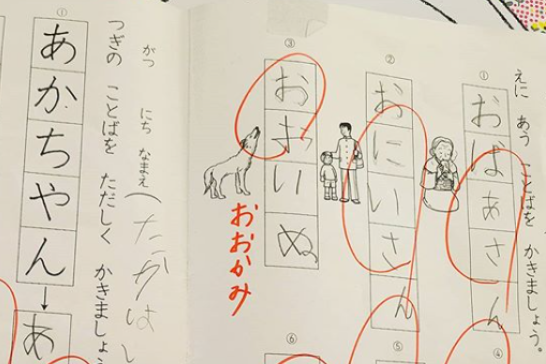 えに あう ことばを かきましょう。
①
おばあさん
②
おにいさん
③
おおいぬ
おおかみ
④
⑤
⑥
がつ にち なまえ(たかは
つぎの ことばを ただしく かきましょう
①
あかちやん→あ